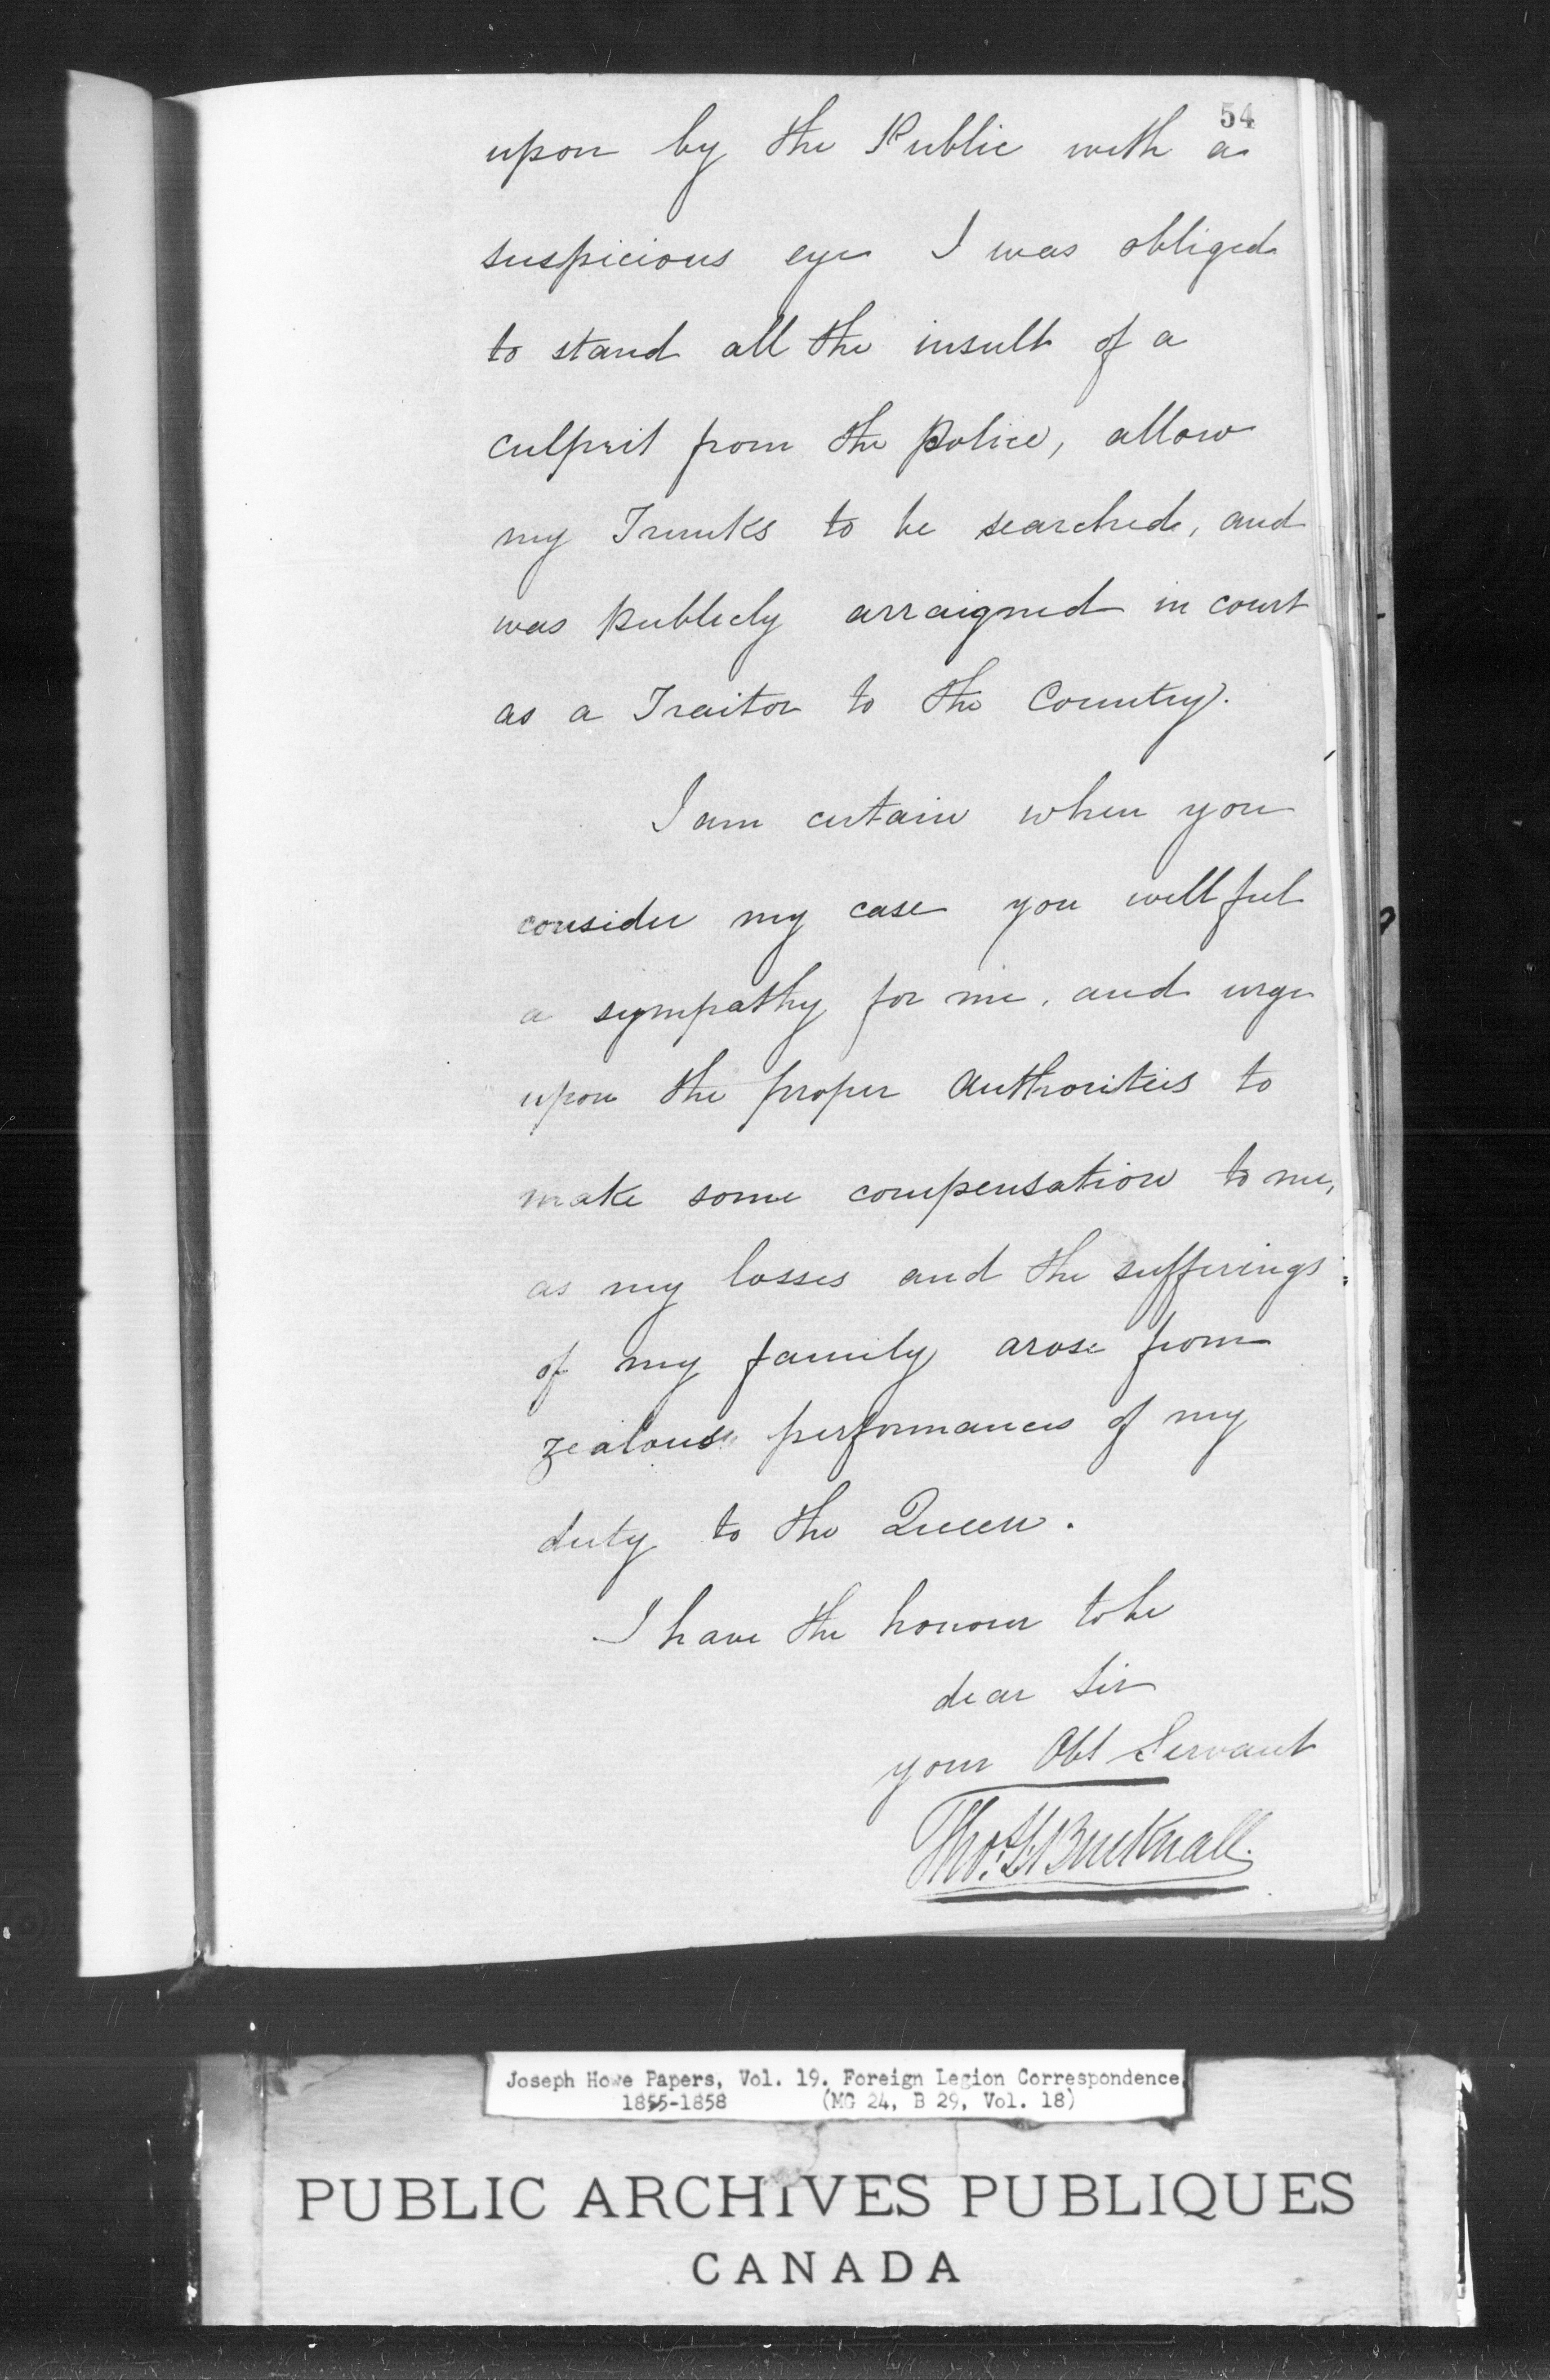 54
upon by the Public with a
suspicious eye I was obliged
to stand all the insult of a
culprit from the police, allow
my Trunks to be searched, and
was publicly arraigned in court
as a Traitor to the Country.
I am certain when you
consider my case you will feel
a sympathy for me, and urge
upon the proper authorities to
make some compensation to me,
as my losses and the sufferings
of my family arose from
zealous performances of my
duty to the Queen.
I have the honour to be
dear Sir
your Obt Servant
Thos. H Bucknall.
Joseph Howe Papers, Vol. 19. Foreign Legion Correspondence
1855-1858 (MG 24, B 29, Vol. 18)
PUBLIC ARCHIVES PUBLIQUES
CANADA